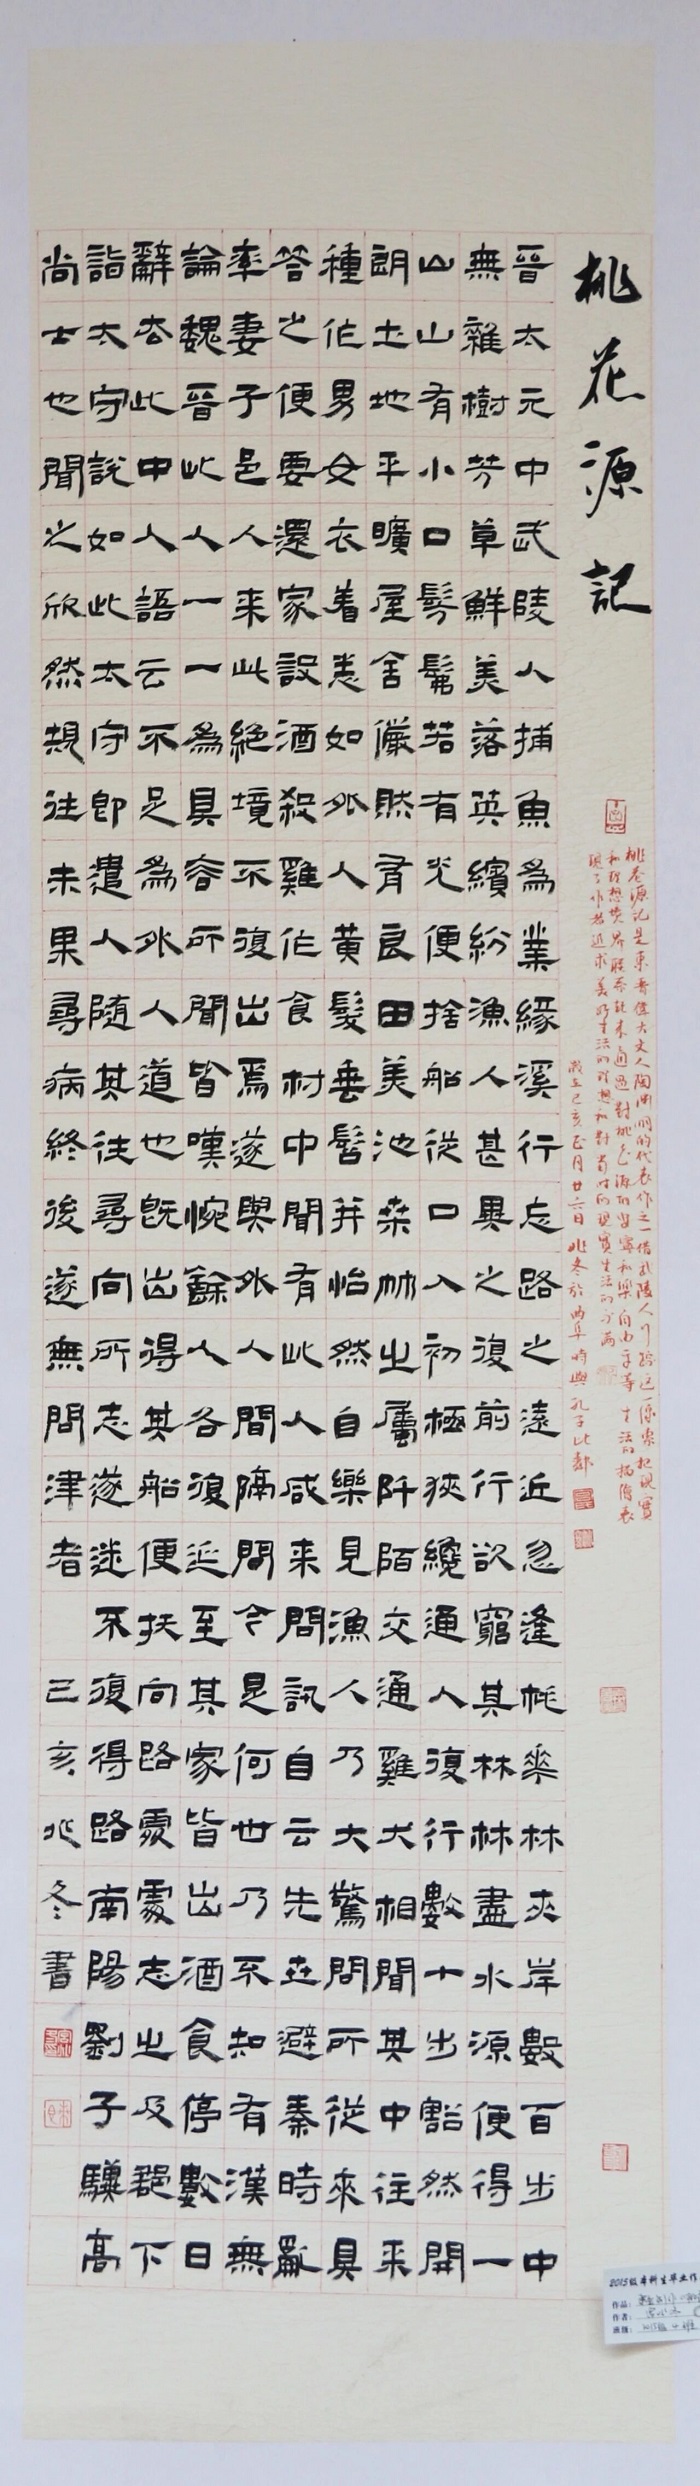 桃花源記
晋太元中武陵人捕魚為業緣溪行忘路之遠近忽逢桃華林夾岸數百步中
無雜樹芳草鮮美落英繽紛漁人甚異之復前行欲窮其林林盡水源便得一
山山有小口髣髴若有光便捨船從口入初極狹纔通人復行數十步豁然開
朗土地平曠屋舍儼然有良田美池桑竹之屬阡陌交通雞犬相聞其中往来
種作男女衣着悉如外人黃髮垂髫并怡然自樂見漁人乃大驚問所從來具
答之便要還家設酒殺雞作食村中聞有此人咸来問訊自云先世避秦時亂
率妻子邑人来此絕境不復出焉遂與外人間隔問今是何世乃不知有漢無
論魏晋此人一一為具容所聞皆嘆惋餘人各復延至其家皆出酒食停數日
辭去此中人語云不足為外人道也既出得其船便扶向路處處志之及郡下
詣太守說如此太守即遣人隨其往尋向所志遂迷不復得路南陽劉子驥高
尚士也聞之欣然規往未果尋病終後遂無問津者 己亥兆冬書
桃花源記是東晉偉大文人陶淵明的代表作之一借武陵人行踪這一線索把現實
和理想境界联系起来通過對桃花源的安寧和樂自由平等生活的描繪表
現了作者追求美好生活的理想和對當時的現實生活的不滿
歲在己亥正月廿六日兆冬於曲阜時與孔子比鄰
2015级本科生毕业作
作品:
作者:
班级: